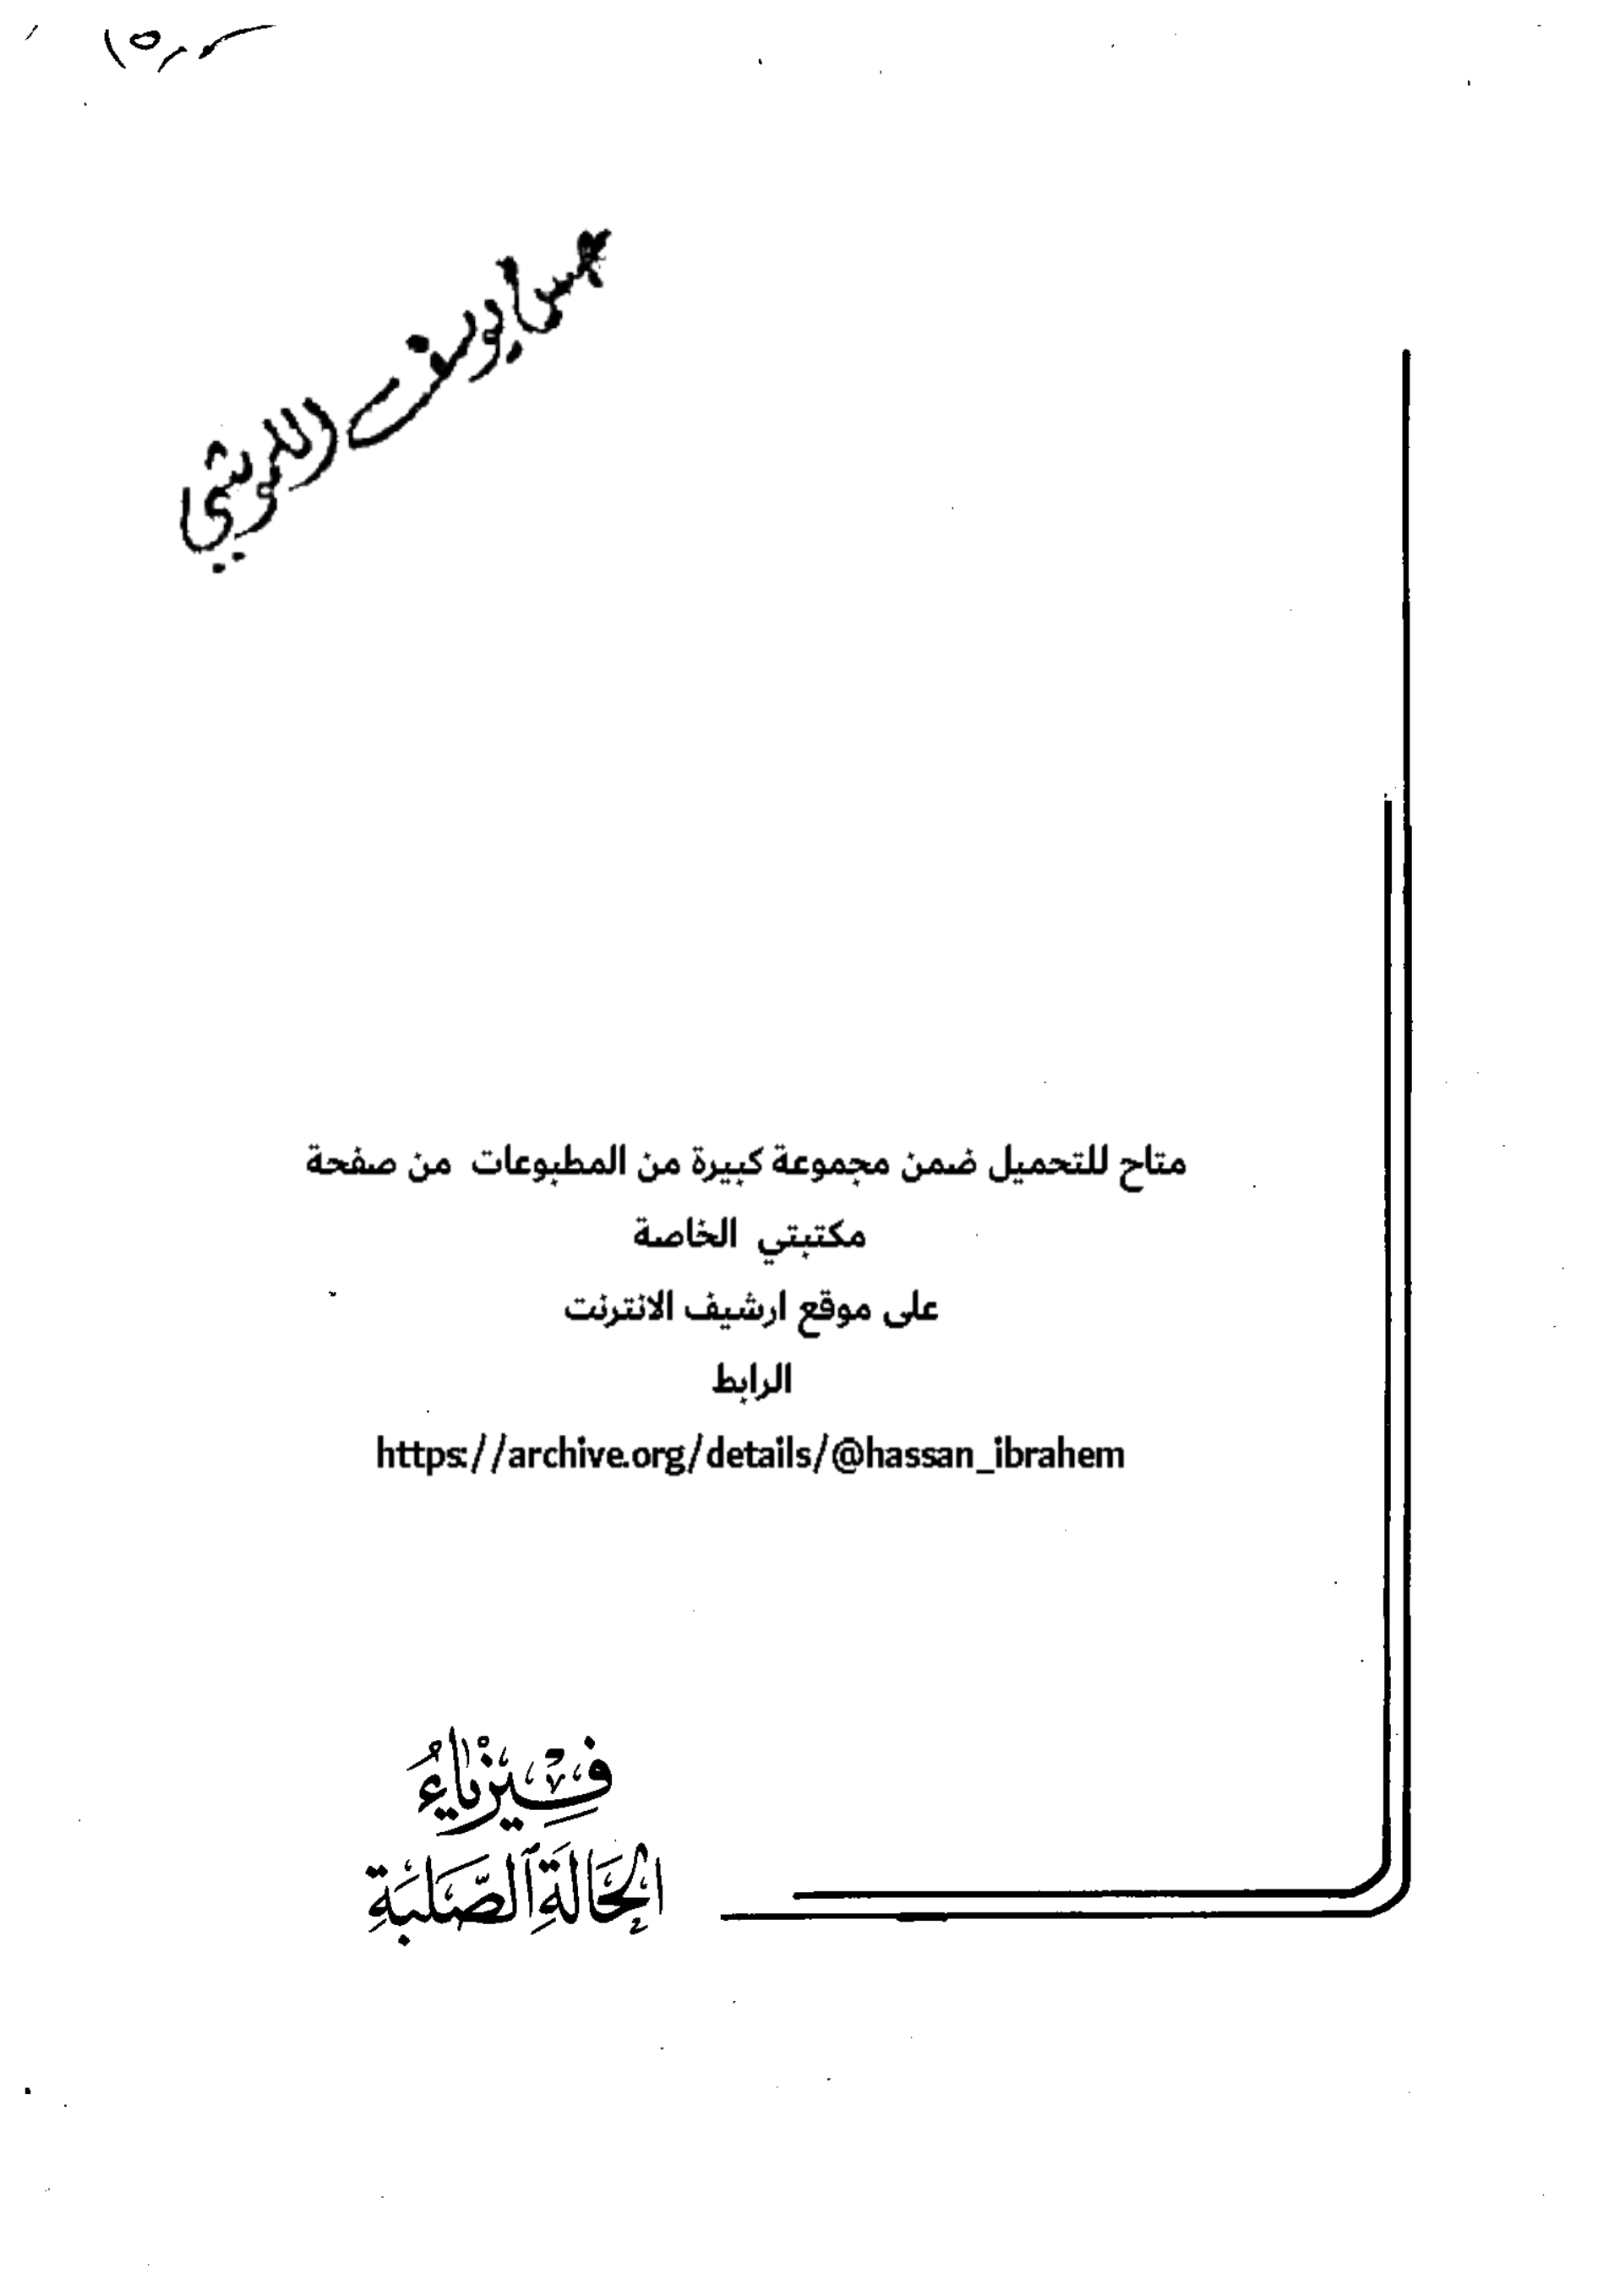 يوسف
متاح للتحميل ضمن مجموعة كبيرة من المطبوعات من صفحة
مكتبتي الخاصة
على موقع ارشيف الانترنت
الرابط
https://archive.org/details/@hassan_ibrahem
فِيزْيَاءُ
الحَالَةِ الصَّلْبَةِ